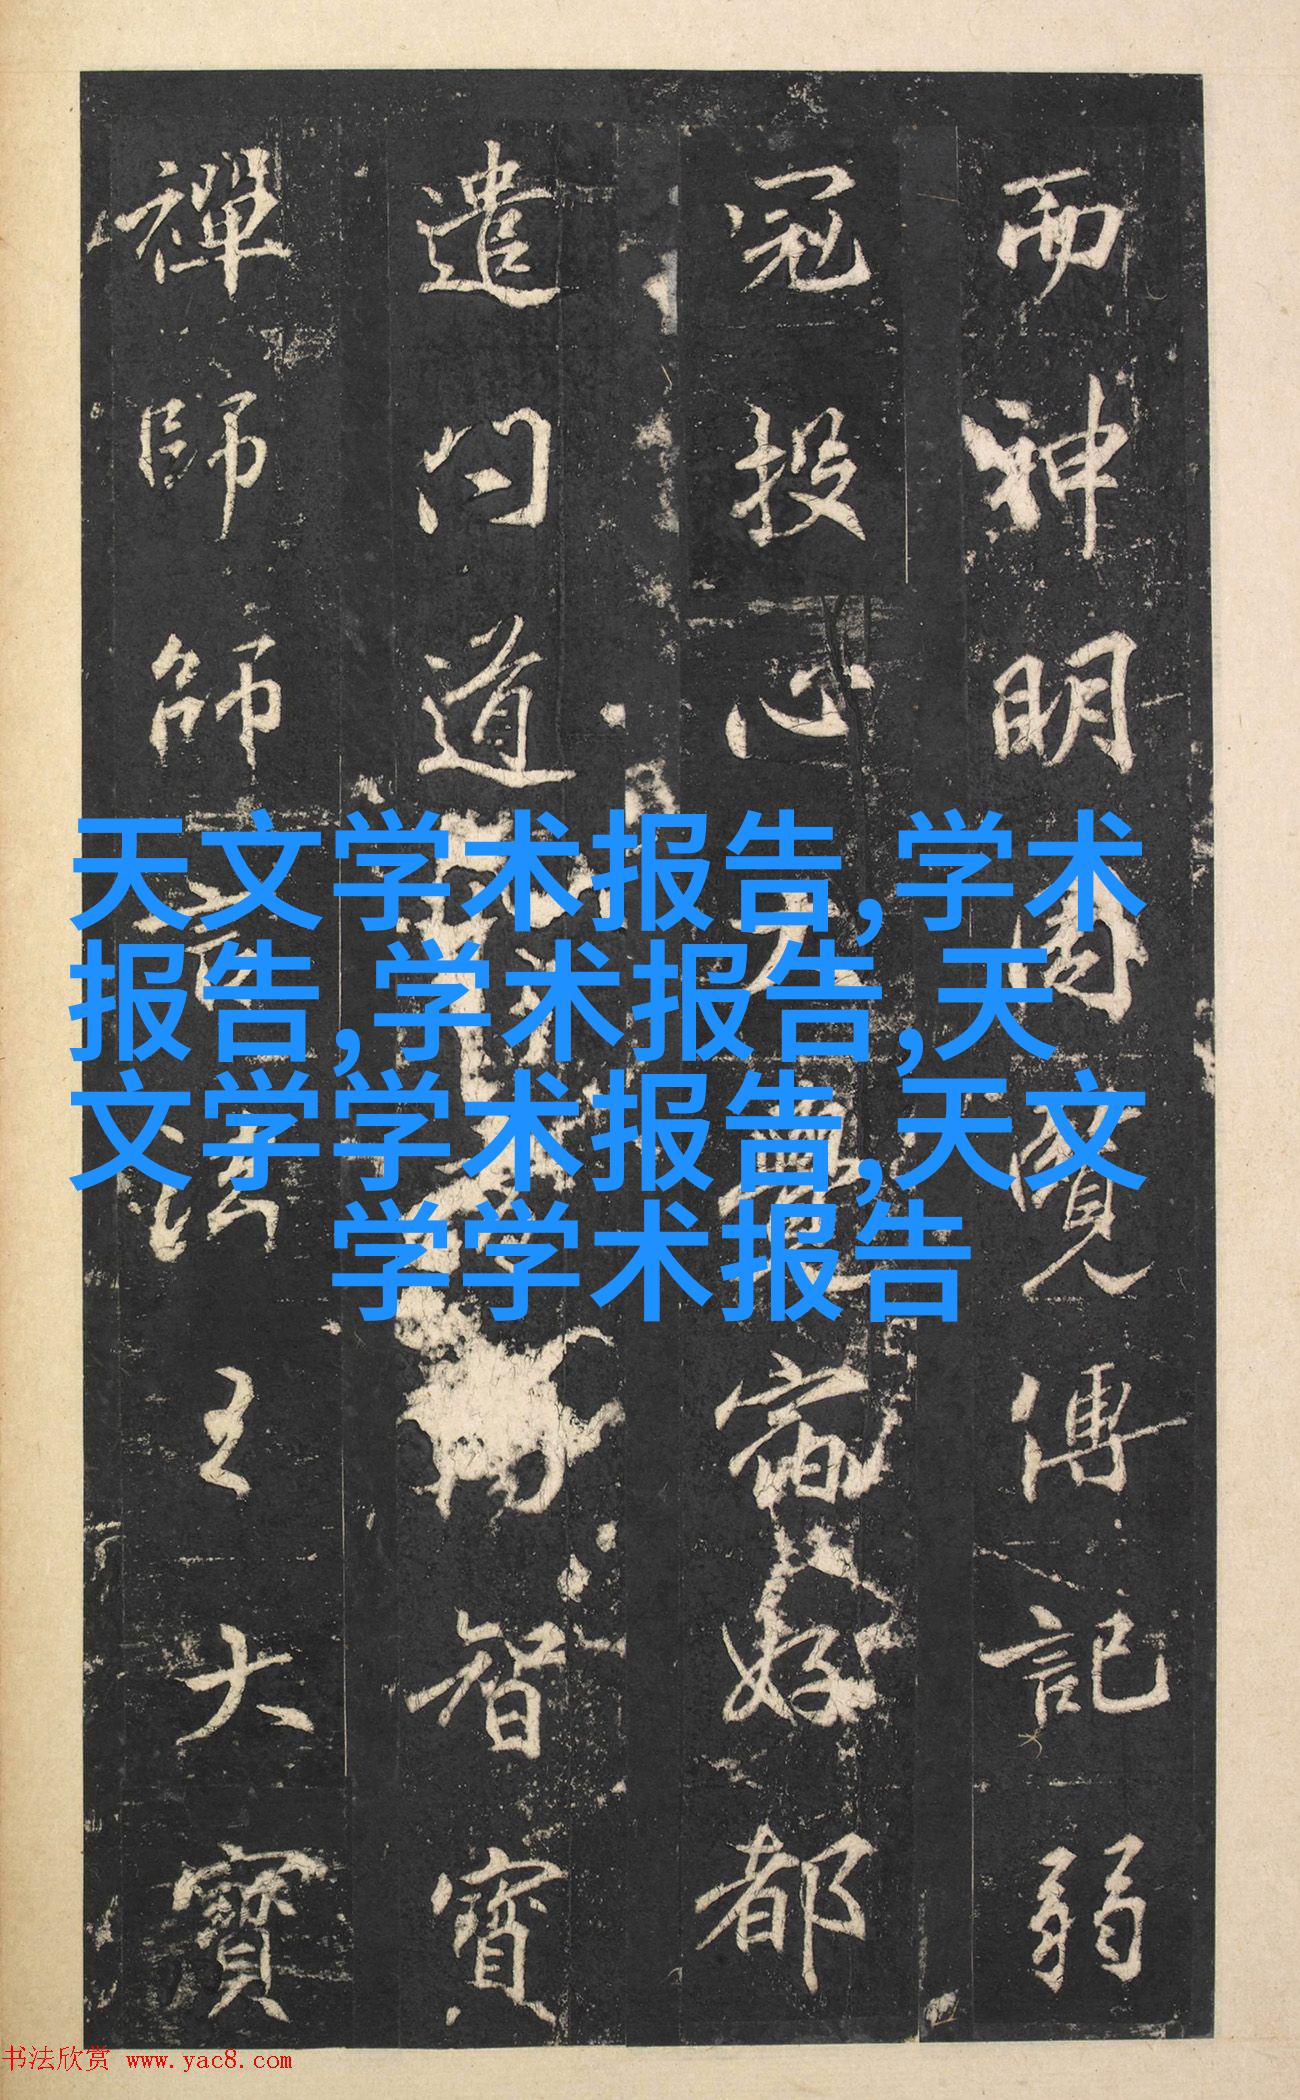 而神明周覽傳記弱
冠投心大覺宿好都
遣問道智寶
禪師師言法王大寶
天文学术报告,学术
报告,学术报告,天
文学学术报告,天文
学学术报告
书法欣赏 www.yac8.com